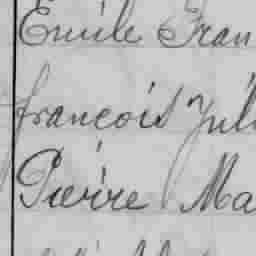 Emile Fran
françois Juli
Pierre Ma